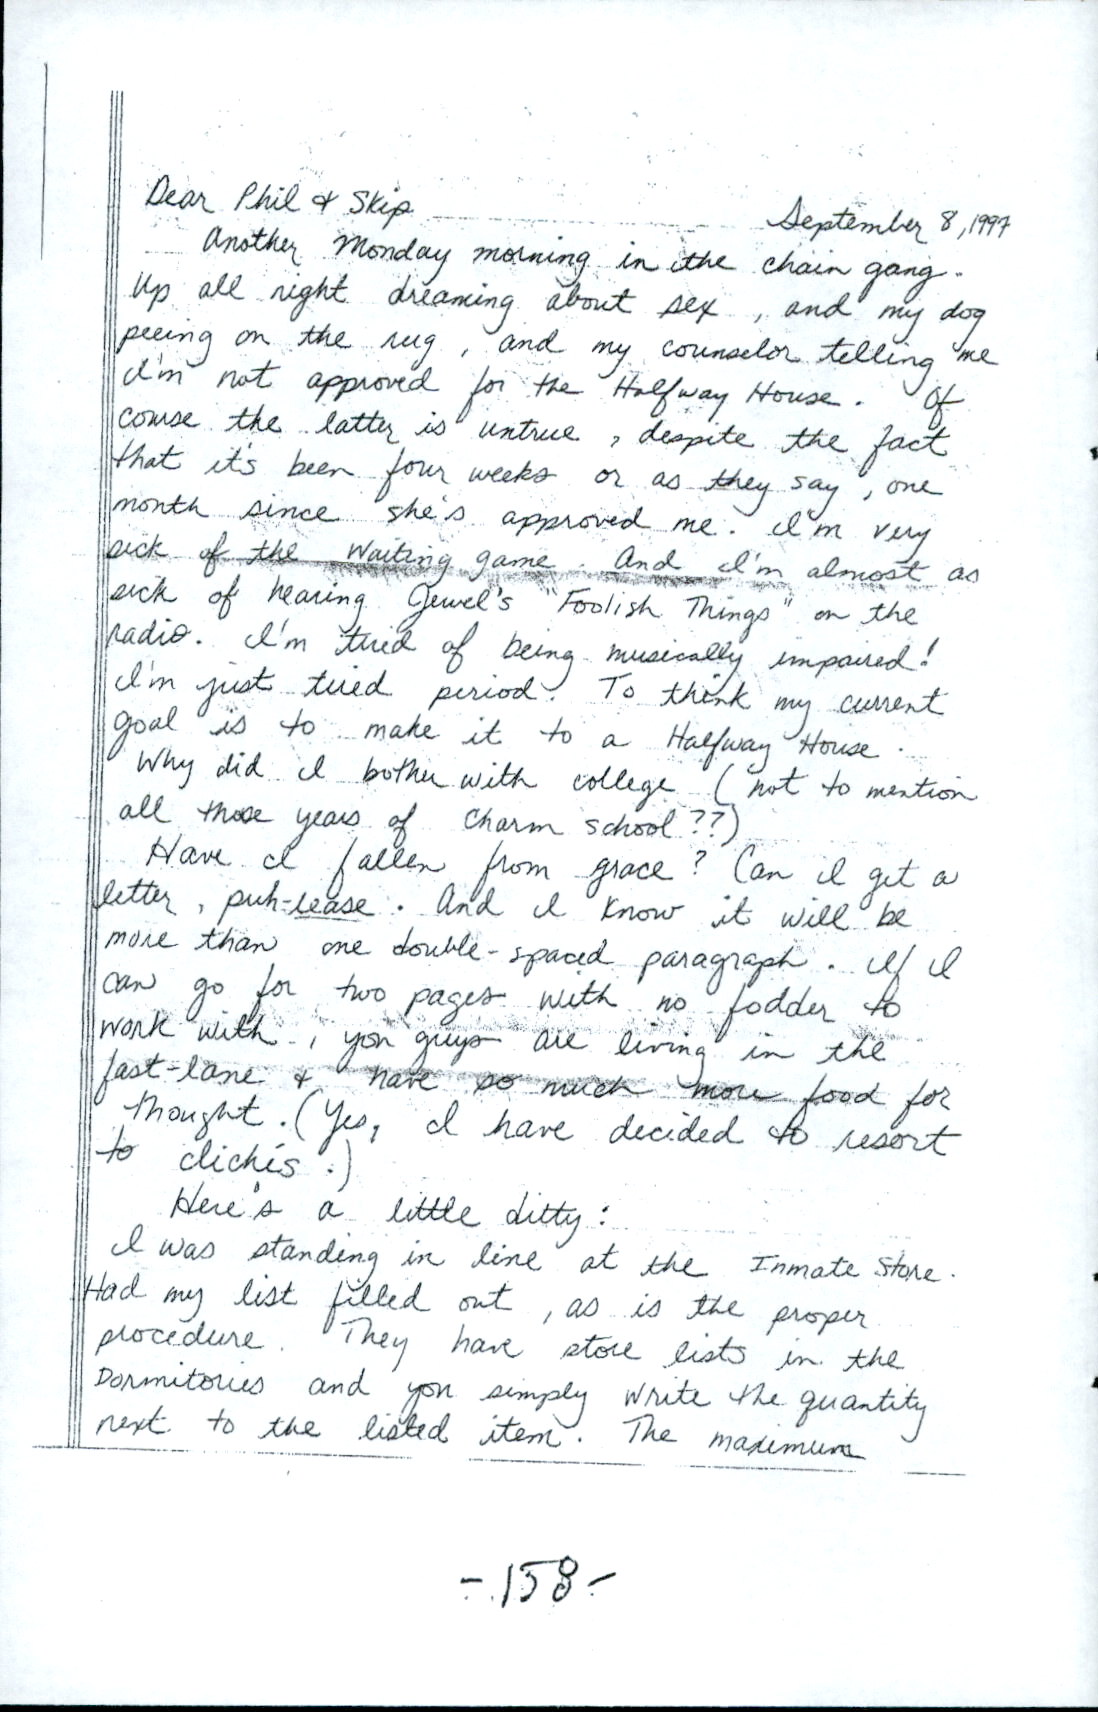 Dear Phil & Skip
September 8, 1997
Another Monday morning in the chain gang.
Up all night dreaming about sex, and my dog
peeing on the rug, and my counselor telling me
I'm not approved for the Halfway House. Of
course the latter is untrue, despite the fact
that it's been four weeks or as they say, one
month since she's approved me. I'm very
sick of the waiting game. And I'm almost as
sick of hearing Jewel's "Foolish Things" on the
radio. I'm tired of being musically impaired!
I'm just tired period. To think my current
goal is to make it to a Halfway House.
Why did I bother with college (not to mention
all those years of charm school??)
Have I fallen from grace? Can I get a
letter, puh-lease. And I know it will be
more than one double-spaced paragraph. If I
can go for two pages with no fodder to
work with, you guys are living in the
fast-lane & have so much more food for
thought. (Yes, I have decided to resort
to clichés.)
Here's a little ditty:
I was standing in line at the Inmate Store.
Had my list filled out, as is the proper
procedure. They have store lists in the
Dormitories and you simply write the quantity
next to the listed item. The maximum
- 158 -